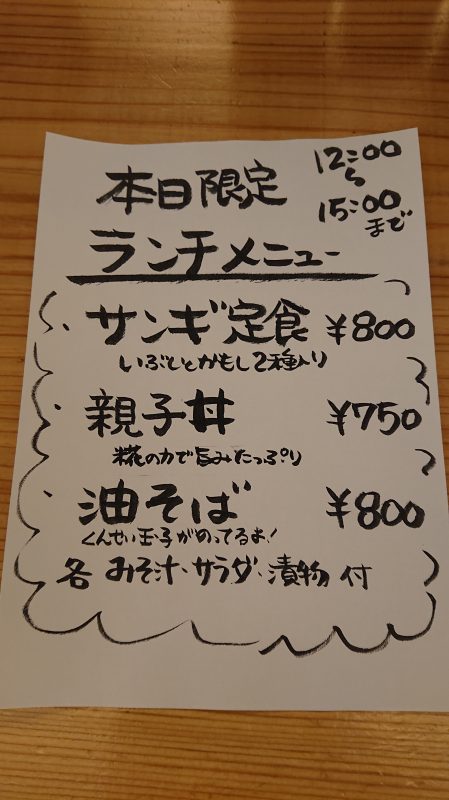 本日限定
12:00
〜
15:00
まで
ランチメニュー
・サンギ定食 ¥800
いぶしとかもし2種入り
・親子丼 ¥750
糀の力で旨みたっぷり
・油そば ¥800
くんせい玉子がのってるよ!
各 みそ汁・サラダ・漬物 付